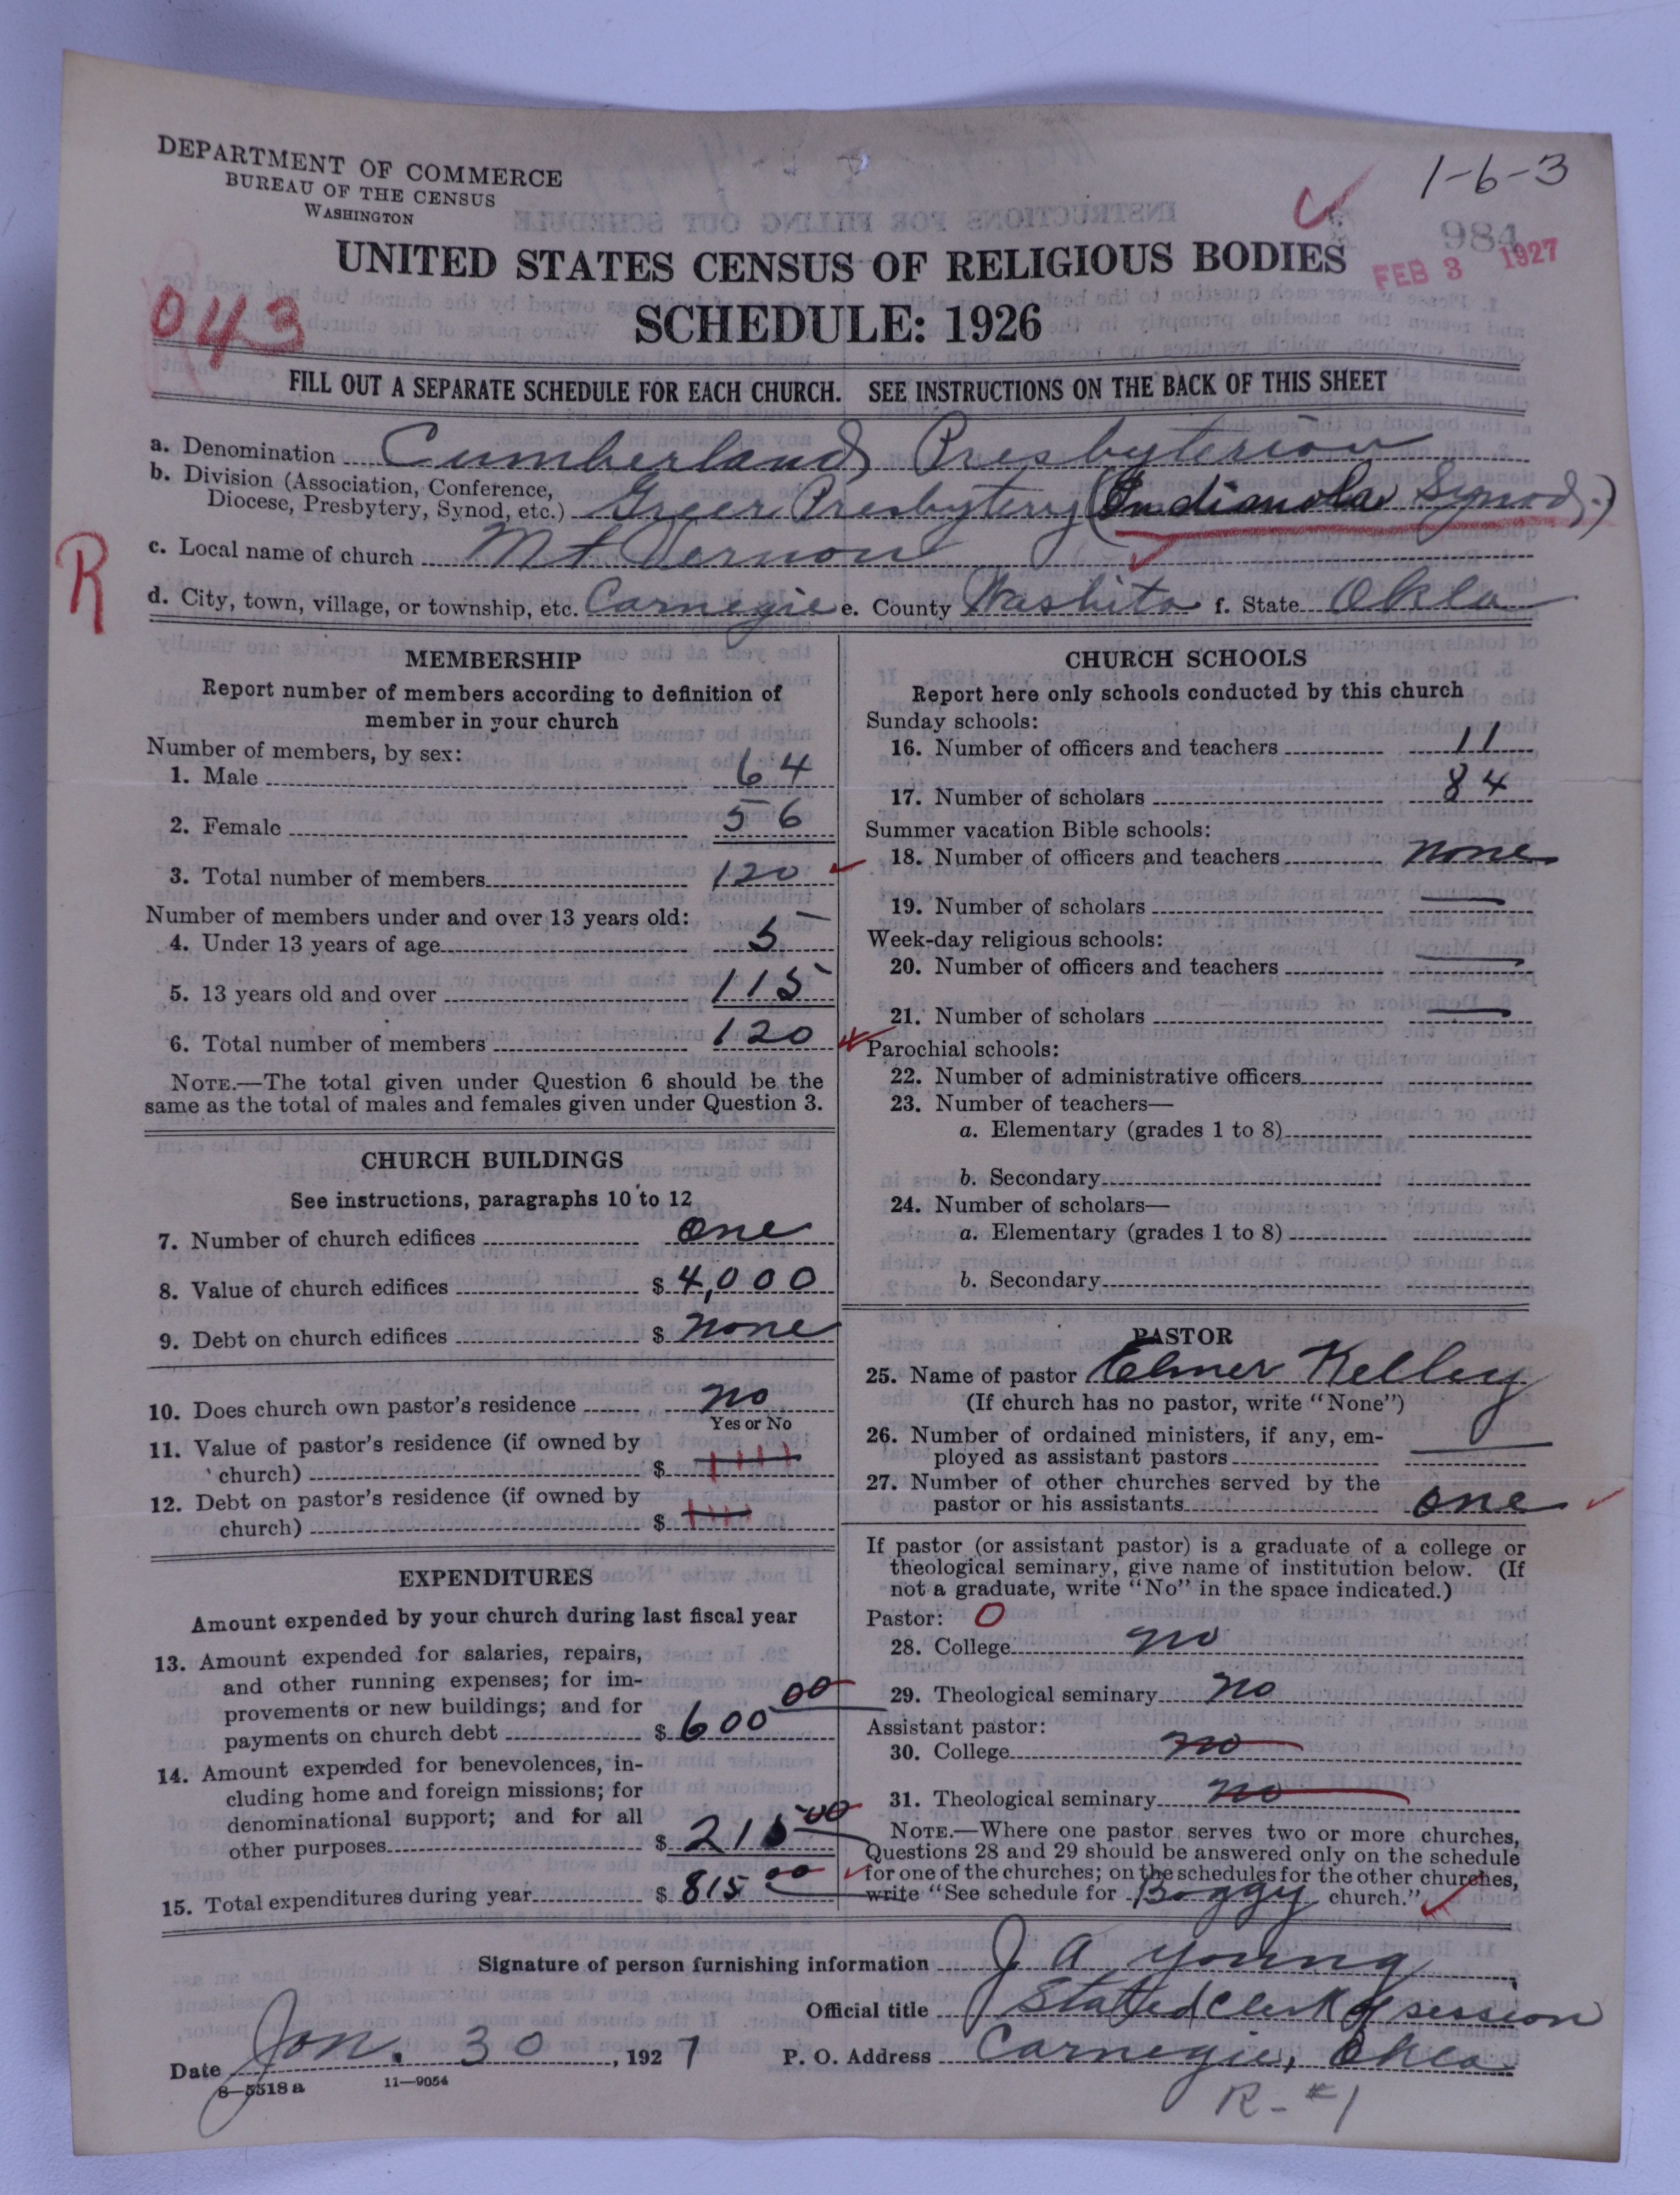 DEPARTMENT OF COMMERCE
BUREAU OF THE CENSUS
WASHINGTON
1-6-3
984
FEB 3 1927
043
UNITED STATES CENSUS OF RELIGIOUS BODIES
SCHEDULE: 1926
FILL OUT A SEPARATE SCHEDULE FOR EACH CHURCH. SEE INSTRUCTIONS ON THE BACK OF THIS SHEET
a. Denomination Cumberland Presbyterian
b. Division (Association, Conference,
Diocese, Presbytery, Synod, etc.) Greer Presbytery (Indianola Synod.)
R
c. Local name of church Mt Vernon
d. City, town, village, or township, etc. Carnegie e. County Washita f. State Okla
MEMBERSHIP
Report number of members according to definition of
member in your church
Number of members, by sex:
1. Male 64
2. Female 56
3. Total number of members 120
Number of members under and over 13 years old:
4. Under 13 years of age 5
5. 13 years old and over 115
6. Total number of members 120
NOTE.—The total given under Question 6 should be the
same as the total of males and females given under Question 3.
CHURCH BUILDINGS
See instructions, paragraphs 10 to 12
7. Number of church edifices one
8. Value of church edifices $ 4,000
9. Debt on church edifices $ none
10. Does church own pastor's residence no
Yes or No
11. Value of pastor's residence (if owned by
church) $
12. Debt on pastor's residence (if owned by
church) $
EXPENDITURES
Amount expended by your church during last fiscal year
13. Amount expended for salaries, repairs,
and other running expenses; for im-
provements or new buildings; and for
payments on church debt $ 600 00
14. Amount expended for benevolences, in-
cluding home and foreign missions; for
denominational support; and for all
other purposes $ 215 00
15. Total expenditures during year $ 815 00
CHURCH SCHOOLS
Report here only schools conducted by this church
Sunday schools:
16. Number of officers and teachers 11
17. Number of scholars 84
Summer vacation Bible schools:
18. Number of officers and teachers none
19. Number of scholars
Week-day religious schools:
20. Number of officers and teachers
21. Number of scholars
Parochial schools:
22. Number of administrative officers
23. Number of teachers—
a. Elementary (grades 1 to 8)
b. Secondary
24. Number of scholars—
a. Elementary (grades 1 to 8)
b. Secondary
PASTOR
25. Name of pastor Elmer Kelley
(If church has no pastor, write "None")
26. Number of ordained ministers, if any, em-
ployed as assistant pastors
27. Number of other churches served by the
pastor or his assistants one
If pastor (or assistant pastor) is a graduate of a college or
theological seminary, give name of institution below. (If
not a graduate, write "No" in the space indicated.)
Pastor: O
28. College no
29. Theological seminary no
Assistant pastor:
30. College no
31. Theological seminary no
NOTE.—Where one pastor serves two or more churches,
Questions 28 and 29 should be answered only on the schedule
for one of the churches; on the schedules for the other churches,
write "See schedule for Boggy church."
Signature of person furnishing information J A Young
Official title Stated Clerk of session
Date Jan. 30, 1927 P. O. Address Carnegie, Okla
R-#1
8-5518a 11-9054